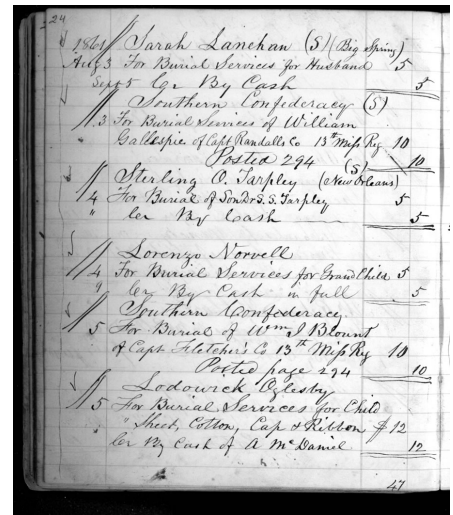 24
1861 Sarah Lanehan (S) (Big Spring)
Aug 3 For Burial Services for Husband 5
Sept 5 Cr By Cash 5
Southern Confederacy (S)
3 For Burial Services of William
Gallespie of Capt Randalls Co 13th Miss Reg 10
Posted 294 10
Sterling O. Tarpley (S) (New Orleans)
4 For Burial of Son Dr S. S. Tarpley 5
" Cr By Cash 5
Lorenzo Norvell
4 For Burial Services for Grand Child 5
9 Cr By Cash in full 5
Southern Confederacy
5 For Burial of Wm J Blount
of Capt Fletcher's Co 13th Miss Reg 10
Posted page 294 10
Lodowick Oglesby
5 For Burial Services for Child
" Sheet, Cotton, Cap & Ribbon $12
Cr By Cash of A McDaniel 12
47